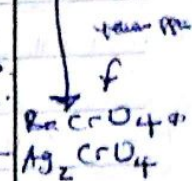 yellow ppt
f
BaCrO4 or
Ag2CrO4